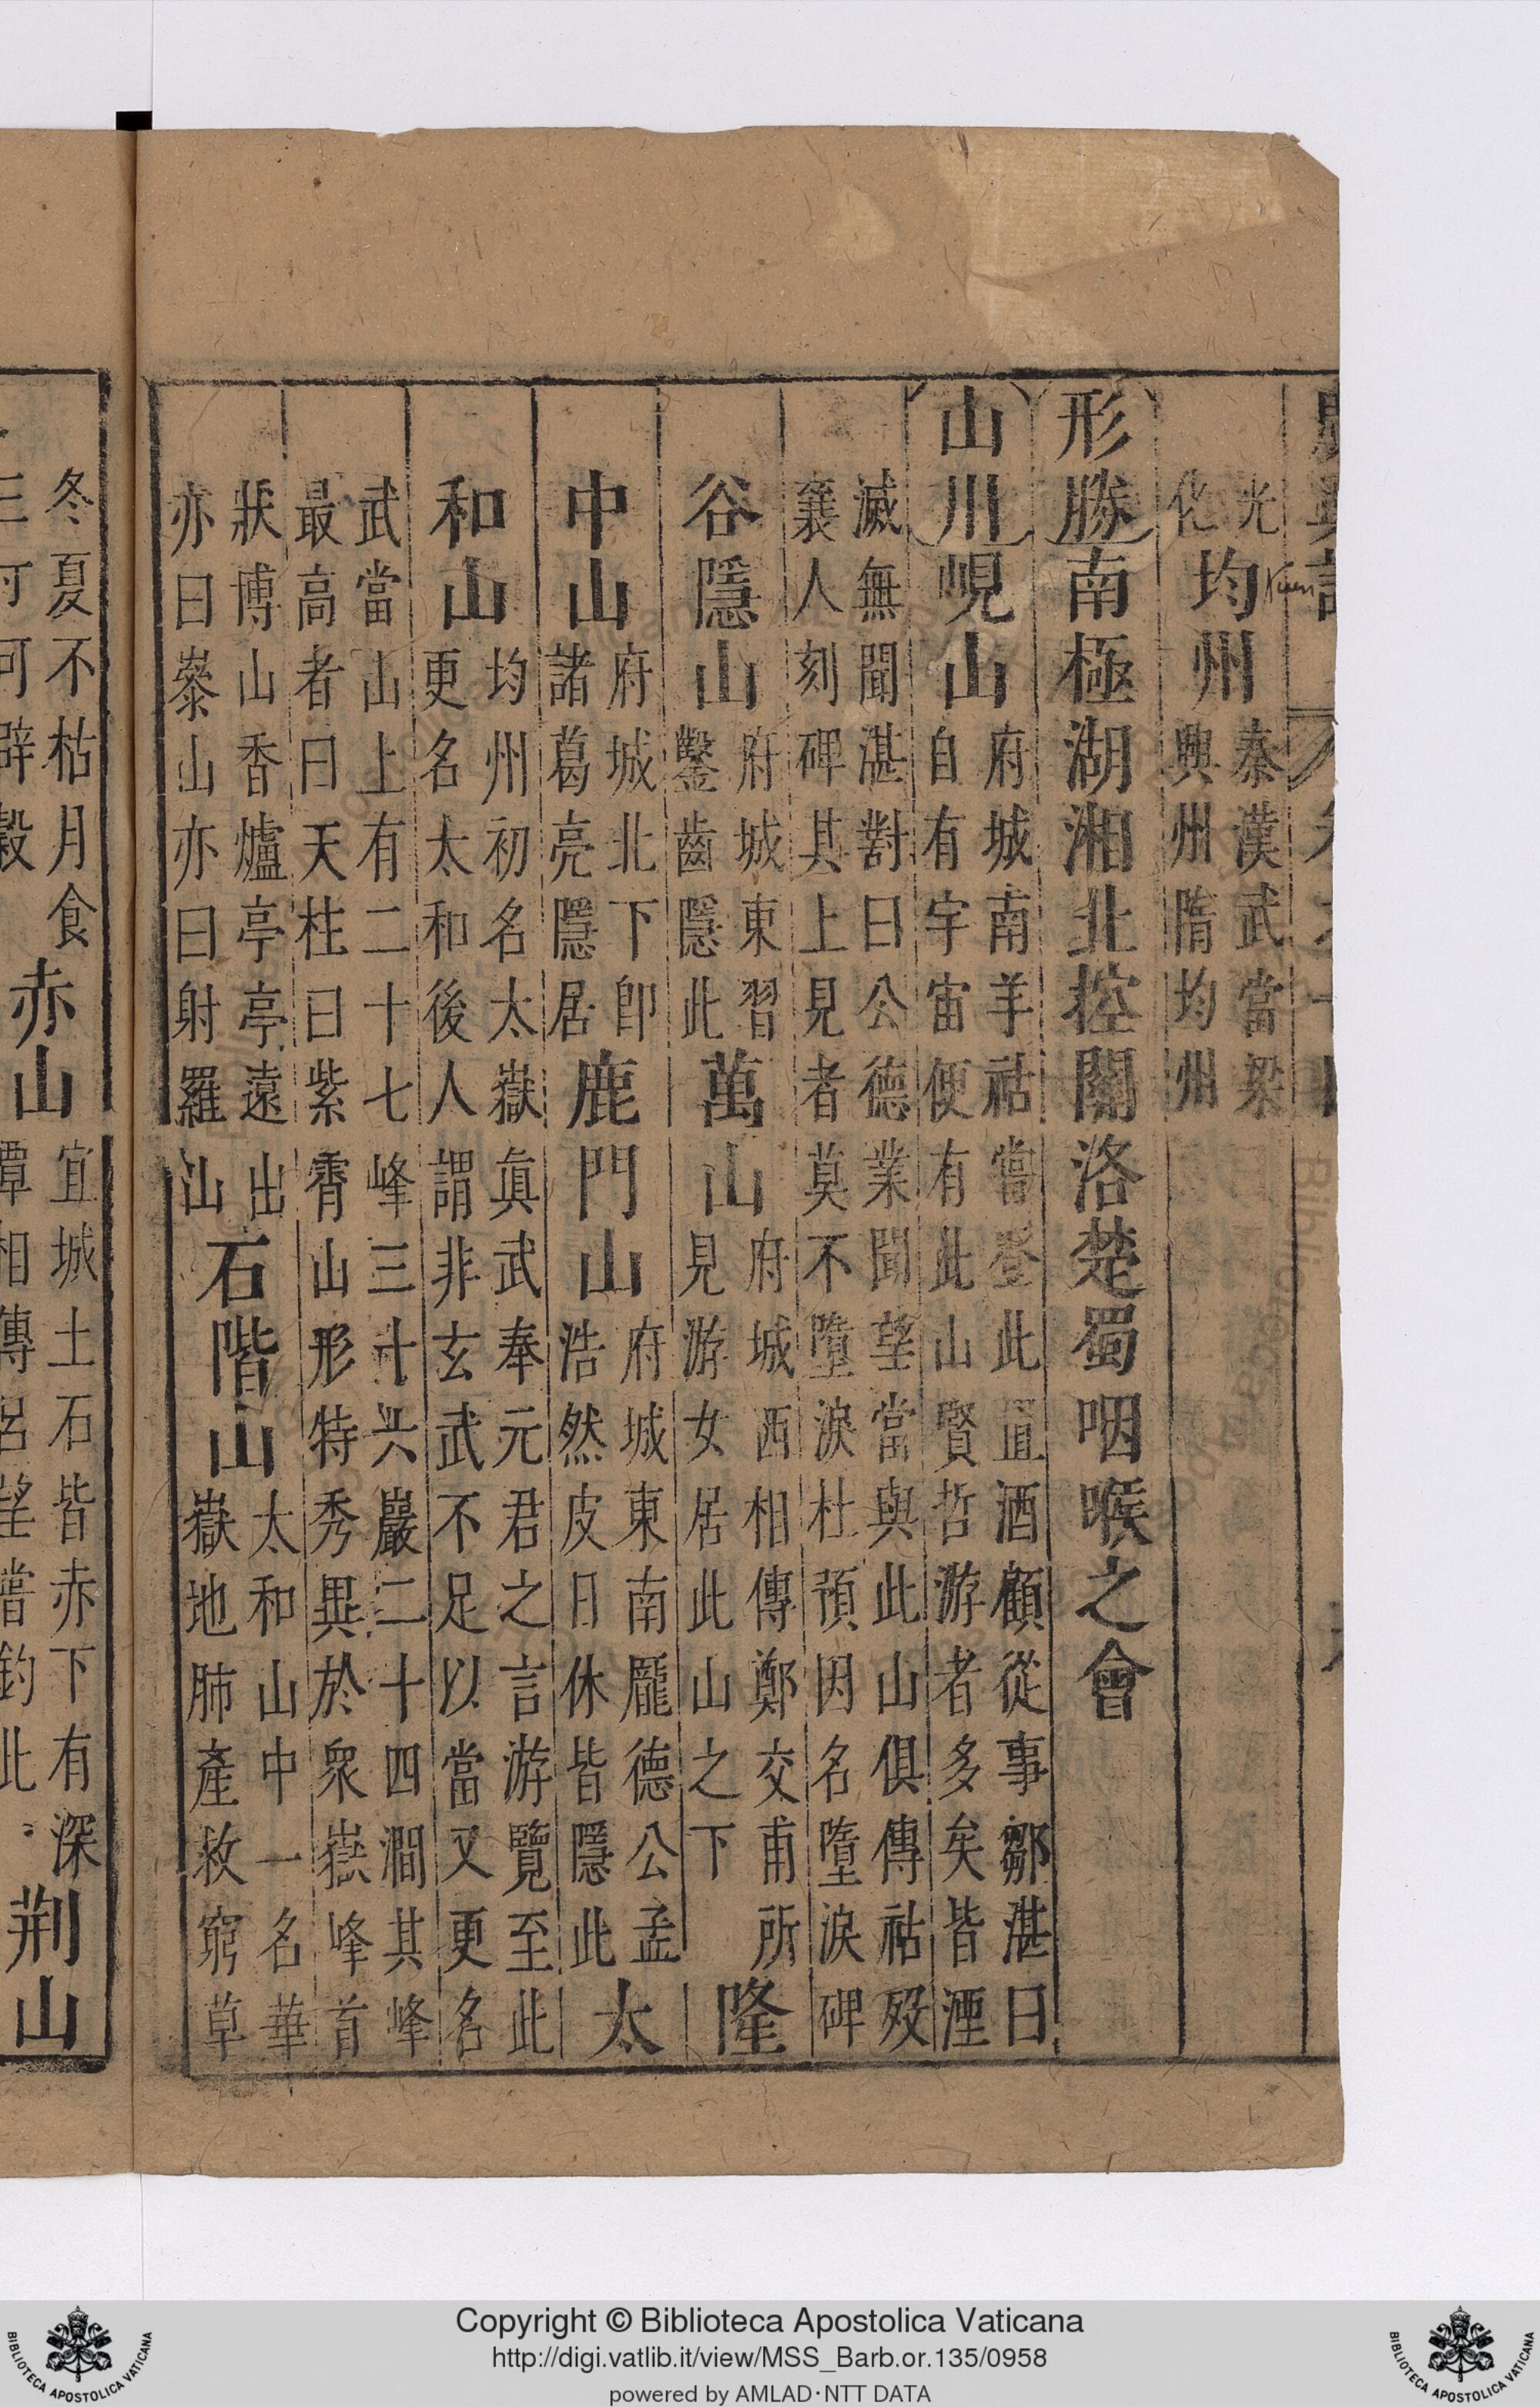 光化 均州 秦漢武當梁
興州隋均州
形勝 南極湖湘北控關洛楚蜀咽喉之會
山川 峴山 府城南羊祜嘗登此置酒顧從事鄒湛曰
自有宇宙便有此山賢哲游者多矣皆湮
滅無聞湛對曰公德業聞望當與此山俱傳祜歿
襄人刻碑其上見者莫不墮淚杜預因名墮淚碑
谷隱山 府城東習
鑿齒隱此 萬山 府城西相傳鄭交甫所
見游女居此山之下 隆
中山 府城北下卽
諸葛亮隱居 鹿門山 府城東南龎德公孟
浩然皮日休皆隱此 太
和山 均州初名太嶽眞武奉元君之言游覽至此
更名太和後人謂非玄武不足以當又更名
武當山上有二十七峰三十六巖二十四澗其峰
最高者曰天柱曰紫霄山形特秀異於衆嶽峰首
狀博山香爐亭亭遠出
亦曰嵾山亦曰射羅山 石階山 太和山中一名華
嶽地肺產救窮草
冬夏不枯月食
赤山 宜城土石皆赤下有深
潭相傳呂望嘗釣此 荆山
Copyright © Biblioteca Apostolica Vaticana
http://digi.vatlib.it/view/MSS_Barb.or.135/0958
powered by AMLAD·NTT DATA
BIBLIOTECA APOSTOLICA VATICANA
BIBLIOTECA APOSTOLICA VATICANA